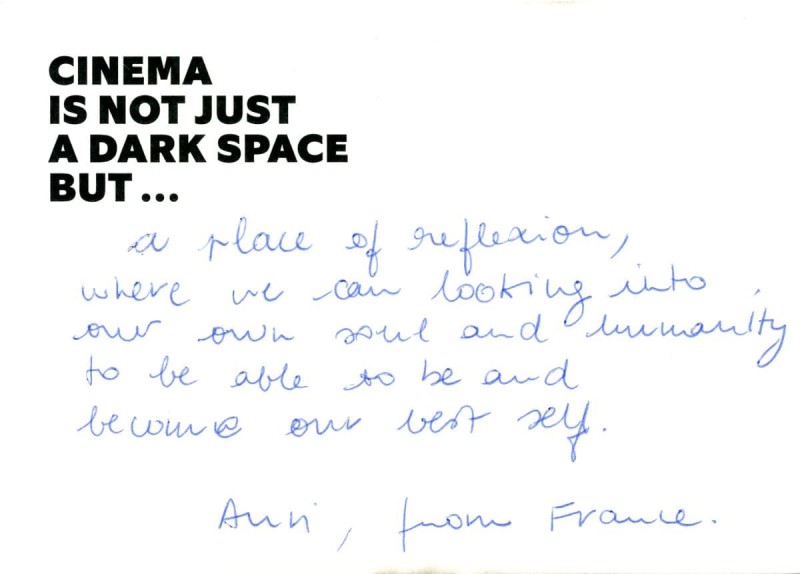 CINEMA
IS NOT JUST
A DARK SPACE
BUT ...
a place of reflexion,
where we can looking into
our own soul and humanity
to be able to be and
become our best self.
from France.